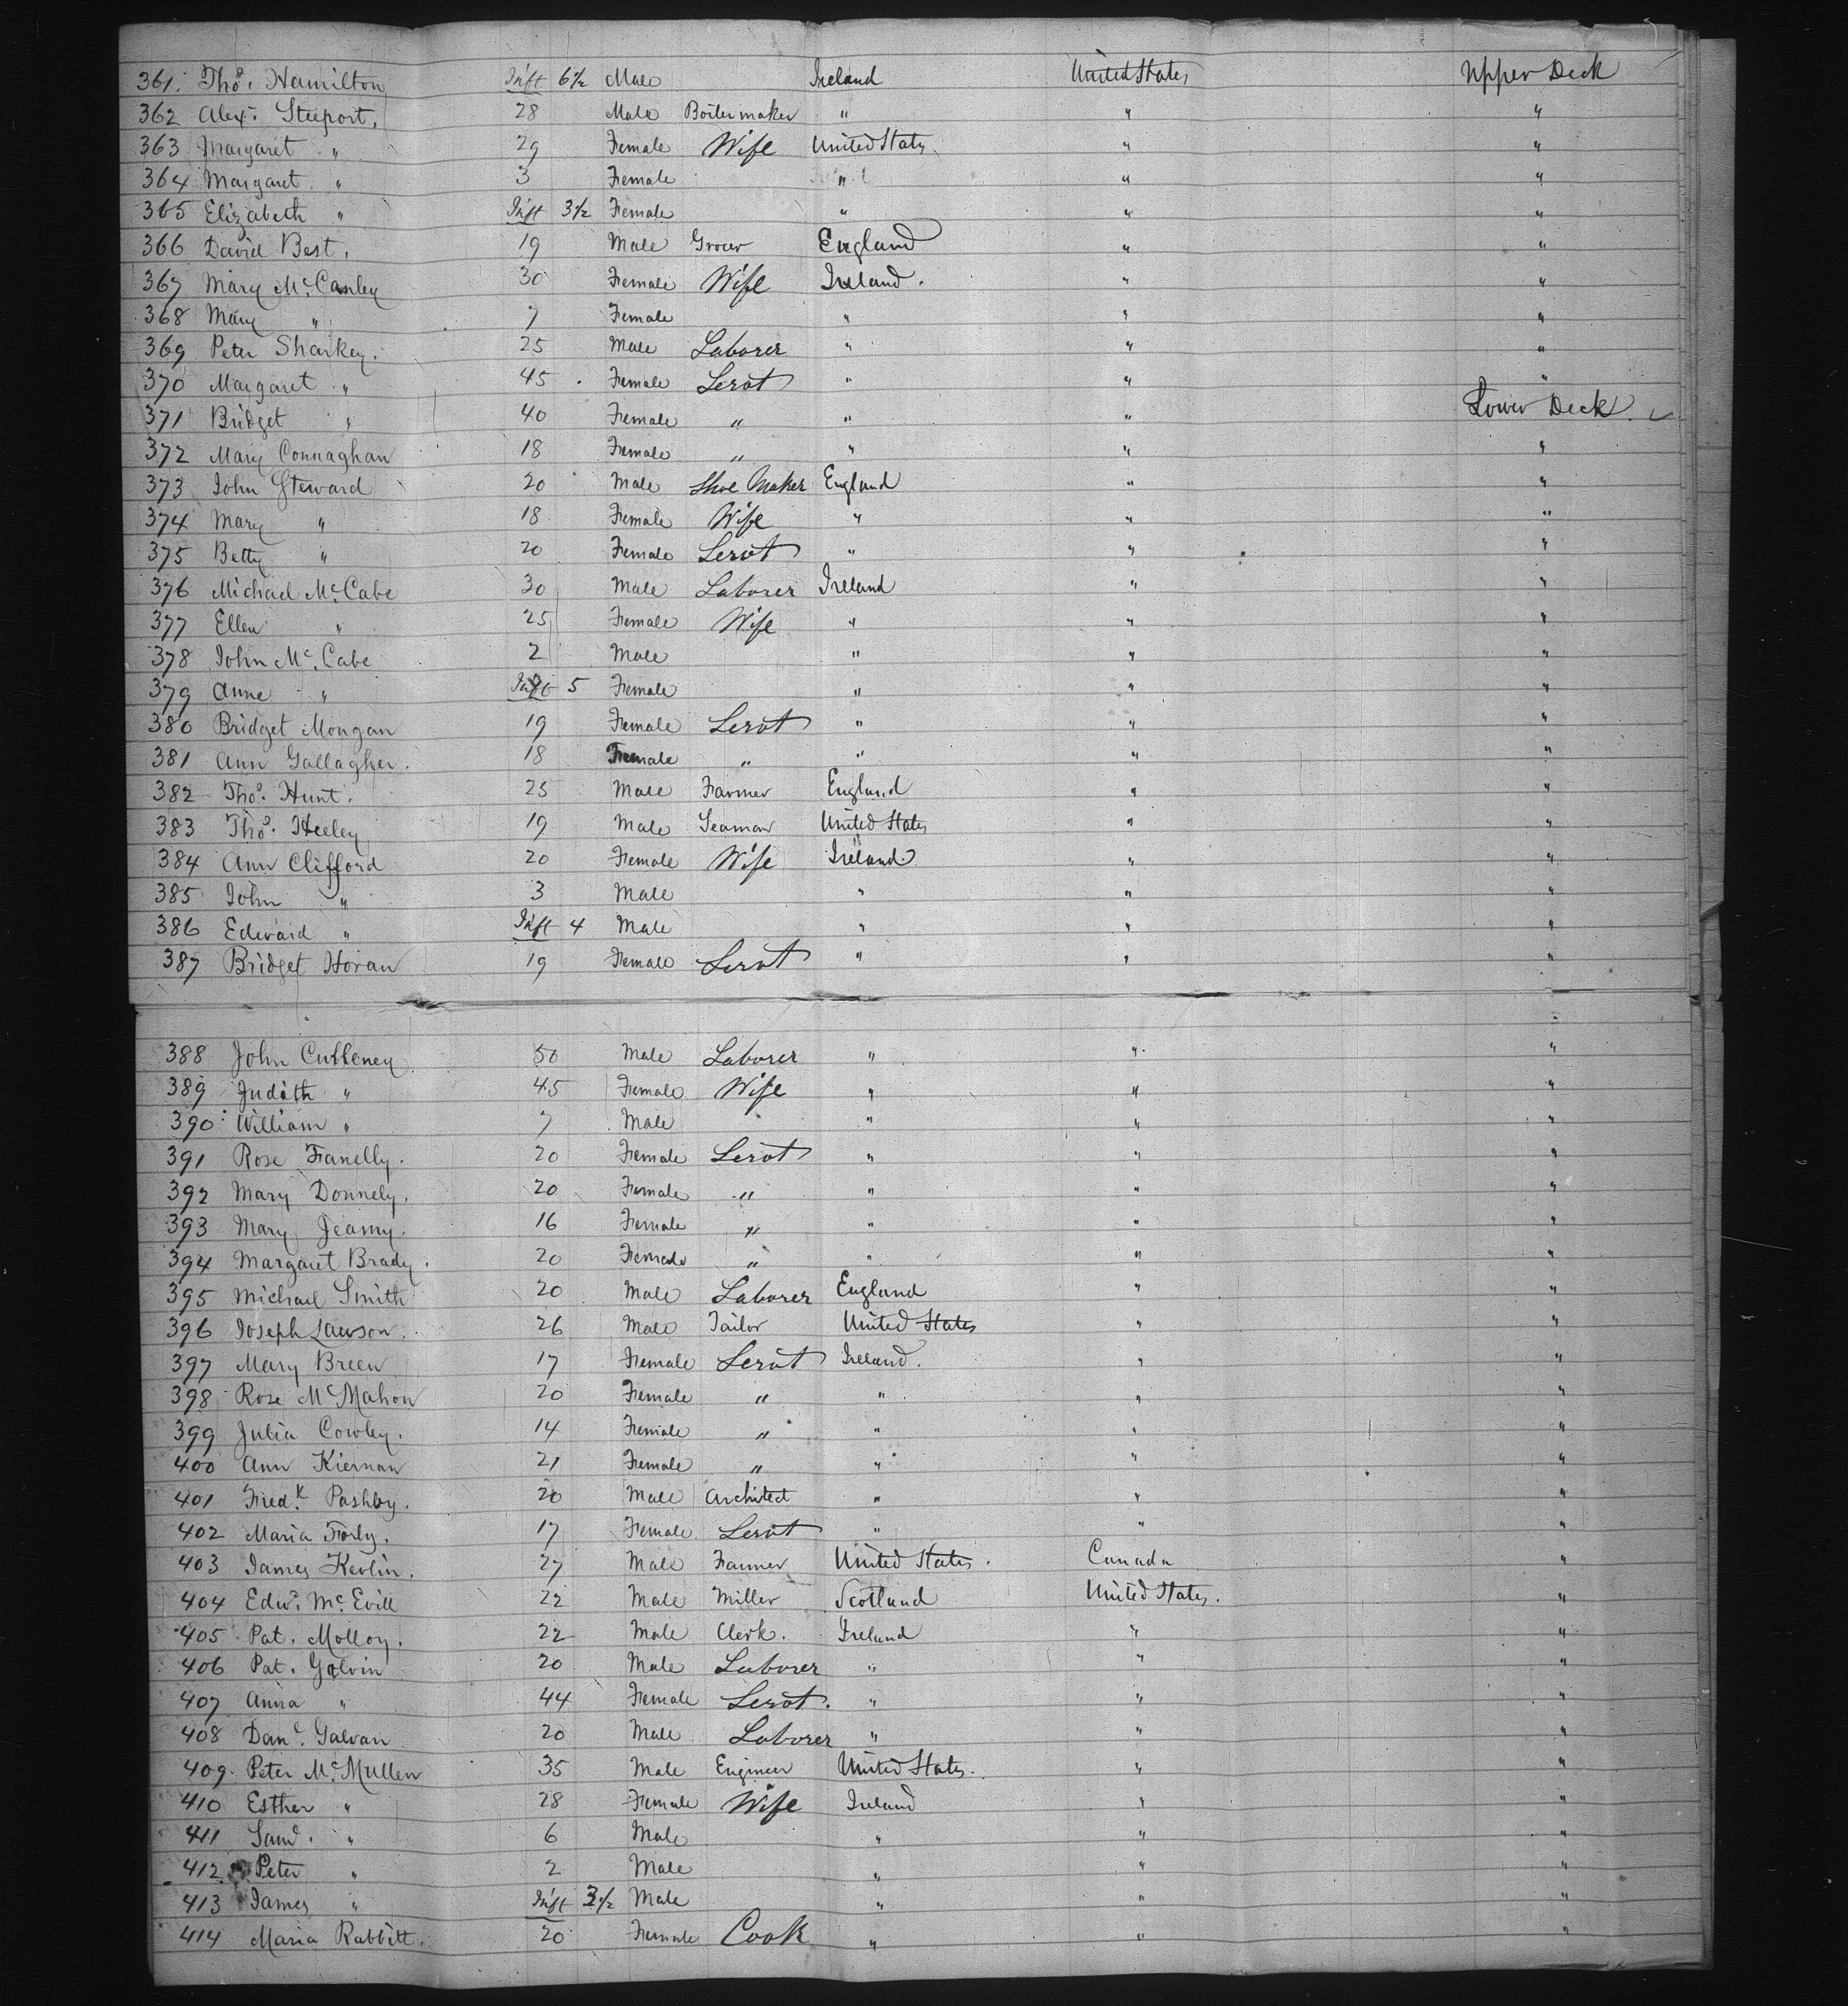 361. Thos. Hamilton Inft 6½ Male Ireland United States Upper Deck
362 Alex. Steeport, 28 Male Boilermaker " " "
363 Margaret " 29 Female Wife United States " "
364 Margaret " 3 Female " " "
365 Elizabeth " Inft 3½ Female " " "
366 David Best. 19 Male Grocer England " "
367 Mary McCanley 30 Female Wife Ireland. " "
368 Mary " 7 Female " " "
369 Peter Sharkey. 25 Male Laborer " " "
370 Margaret " 45 Female Servt " " "
371 Bridget " 40 Female " " " Lower Deck.
372 Mary Connaghan 18 Female " " " "
373 John Steward 20 Male Shoe Maker England " "
374 Mary " 18 Female Wife " " "
375 Betty " 20 Female Servt " " "
376 Michael McCabe 30 Male Laborer Ireland " "
377 Ellen " 25 Female Wife " " "
378 John McCabe 2 Male " " "
379 Anne " Inft 5 Female " " "
380 Bridget Mongan 19 Female Servt " " "
381 Ann Gallagher. 18 Female " " " "
382 Thos. Hunt. 25 Male Farmer England " "
383 Thos. Heeley 19 Male Seaman United States " "
384 Ann Clifford 20 Female Wife Ireland " "
385 John " 3 Male " " "
386 Edward " Inft 4 Male " " "
387 Bridget Horan 19 Female Servt " " "
388 John Culleney 50 Male Laborer " " "
389 Judith " 45 Female Wife " " "
390 William " 7 Male " " "
391 Rose Fanelly. 20 Female Servt " " "
392 Mary Donnely. 20 Female " " " "
393 Mary Jeamy. 16 Female " " " "
394 Margaret Brady. 20 Female " " " "
395 Michael Smith 20 Male Laborer England " "
396 Joseph Lawson. 26 Male Tailor United States " "
397 Mary Breen 17 Female Servt Ireland. " "
398 Rose McMahon 20 Female " " " "
399 Julia Cowley. 14 Female " " " "
400 Ann Kiernan 21 Female " " " "
401 Fredk. Pashby. 20 Male Architect " " "
402 Maria Forly. 17 Female Servt " " "
403 James Kevlin. 27 Male Farmer United States. Canada "
404 Edwd. McEvill 22 Male Miller Scotland United States. "
405 Pat. Molloy. 22 Male Clerk. Ireland " "
406 Pat. Galvin 20 Male Laborer " " "
407 Anna " 44 Female Servt. " " "
408 Danl. Galvan 20 Male Laborer " " "
409. Peter McMullen 35 Male Engineer United States. " "
410 Esther " 28 Female Wife Ireland " "
411 Saml. " 6 Male " " "
412 Peter " 2 Male " " "
413 James " Inft 3½ Male " " "
414 Maria Rabbitt. 20 Female Cook " " "